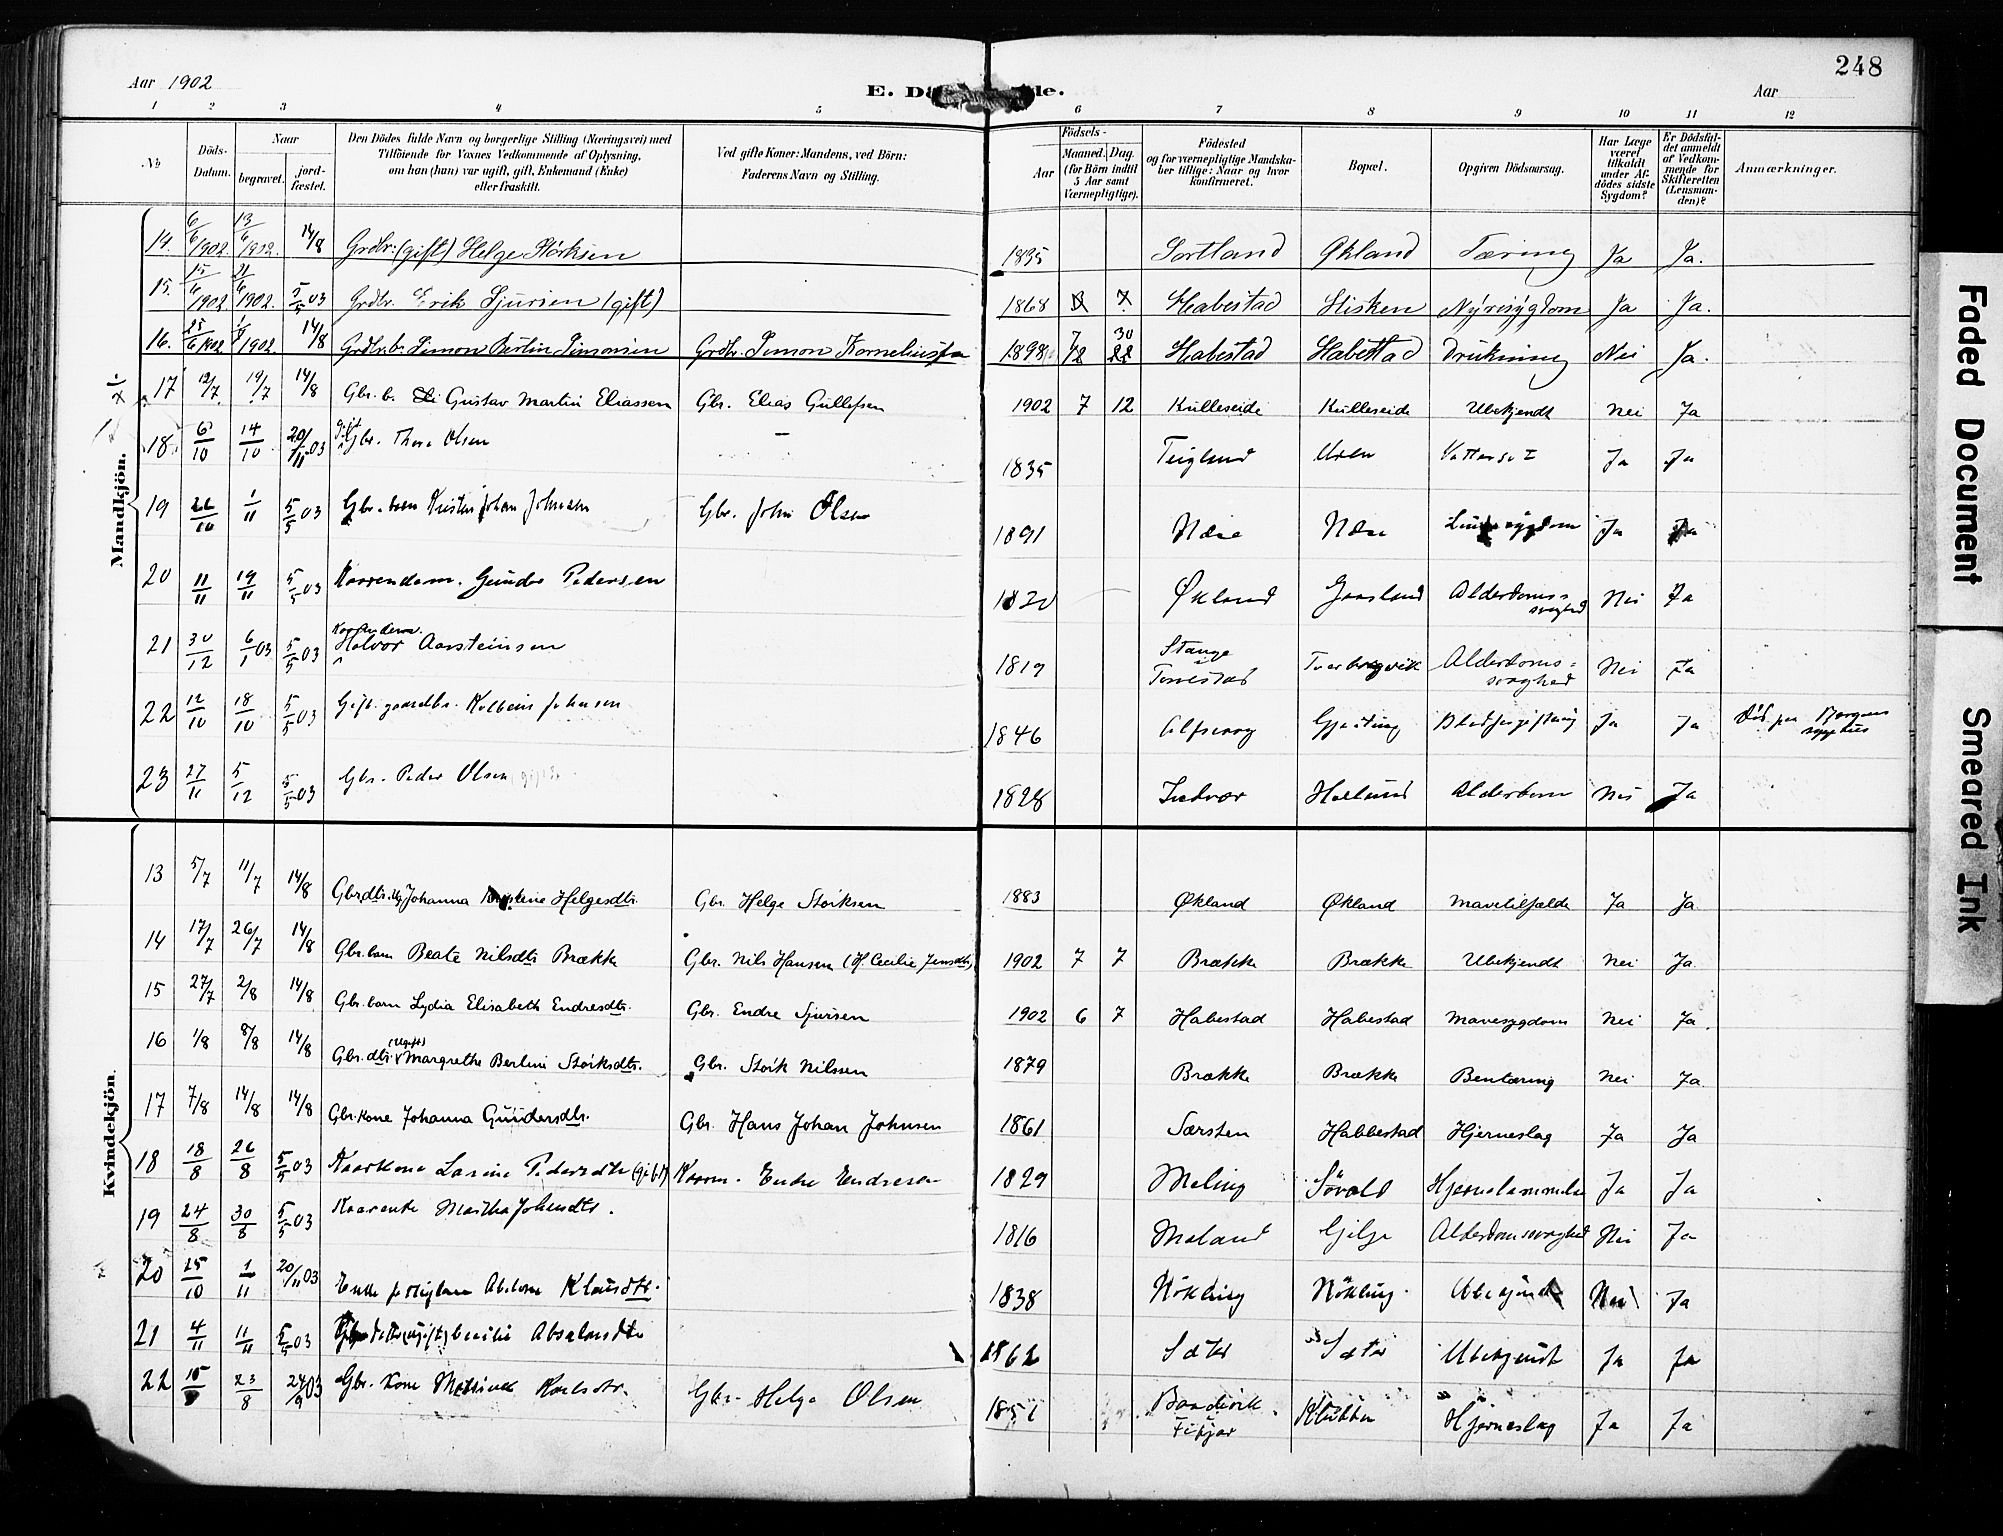 248
Aar 1902
E. D de.
Aar
1 2 3 4 5 6 7 8 9 10 11 12
No
Döds-Datum.
Naar
begravet.
jord-fæstet.
Den Dödes fulde Navn og borgerlige Stilling (Næringsvei) med
Tilföiende for Voxnes Vedkommende af Oplysning,
om han (hun) var ugift, gift, Enkemand (Enke)
eller fraskilt.
Ved gifte Koner: Mandens, ved Börn:
Faderens Navn og Stilling.
Födsels-
Aar
Maaned. Dag.
(for Börn indtil
5 Aar samt
Værnepligtige).
Födested
og for værnepligtige Mandska-
ber tillige: Naar og hvor
konfirmeret.
Bopæl.
Opgiven Dödsaarsag.
Har Læge
været
tilkaldt
under Af-
dödes sidste
Sygdom?
Er Dödsfal-
det anmeldt
af Vedkom-
mende for
Skifteretten
(Lensman-
den)?
Anmærkninger.
Mandkjön.
14. 6/6 1902. 13/6 1902. 14/8 Grdbr. (gift) Helge Störksen 1835 Sortland Økland Tæring Ja Ja.
15. 15/6 1902 21/6 1902. 5/5 03 Grdbr. Erik Sjursen (gift) 1868 7 Habestad Hisken Nyresygdom Ja Ja.
16. 25/6 1902 1902. 14/8 Grdbr. b. Simon Bertin Simonsen Grdbr. Simon Korneliussen 1898 30 Habestad Habestad Drukning Nei Ja.
17 12/7 19/7 14/8 Gbr. b. Gustav Martin Eliassen Gbr. Elias Gullefsen 1902 7 12 Kulleseide Kulleseide Ubekjendt Nei Ja
18 6/10 14/10 20/11 03 gift Gbr. Thore Olsen – 1835 Teigland Uren Vattersot Ja Ja
19 26/10 1/11 5/5 03 Gbr. barn Kristen Johan Johnsen Gbr. John Olsen 1891 Næse Næse sygdom Ja Ja
20 11/11 19/11 5/5 03 Kaarendam. Gunder Pedersen 1820 Økland Gaasland Alderdoms-svaghed Nei Ja
21 30/12 6/1 03 5/5 03 Halvor Aarsteinsen 1819 Stange Alderdoms-svaghed Nei Ja
22 12/10 18/10 5/5 03 Gift gaardbr. Kolbein Johnsen 1846 Alfsvaag Gjerting Blodforgiftning Ja Ja Död paa Bergens sygehus
23 27/11 5/12 5/5 03 Gbr. Peder Olsen gift 1828 Indvær Holund Alderdom Nei Ja
Kvindekjön.
13 5/7 11/7 14/8 Gbr.dtr. Ug. Johanna Helgesdtr. Gbr. Helge Störksen 1883 Økland Økland Mavetilfælde Ja Ja
14 17/7 26/7 14/8 Gbr. barn Beate Nilsdtr Brække Gbr. Nils Hansen (H Cecilie Jensdtr) 1902 7 7 Brække Brække Ubekjendt Nei Ja
15 27/7 2/8 14/8 Gbr. barn Lydia Elisabeth Endresdtr. Gbr. Endre Sjursen 1902 6 7 Habestad Habestad Mavesygdom Nei Ja.
16 1/8 8/8 14/8 Gbr. dtr. (Ugift) Margrethe Bertine Störksdtr. Gbr. Störk Nilssen 1879 Brække Brække Bentæring Nei Ja
17 7/8 14/8 14/8 Gbr. Kone Johanna Gundersdtr. Gbr. Hans Johan Johnsen 1861 Særsten Habbestad Hjerneslag Ja Ja
18 18/8 26/8 5/5 03 Kaarkone Larine Pedersdtr (gift) Kaarm. Endre Endresen 1829 Meling Sövold Hjernelammelse Ja Ja
19 24/8 30/8 5/5 03 Kaarenke Martha Johnsdtr. 1816 Meland Gjilje Alderdomssvaghed Nei Ja
20 25/10 1/11 20/11 03 Enke Klausdtr. 1838 Nökling Nökling. Ubekjendt Nei Ja
21 4/11 11/11 5/5 03 (ugift) Cecilie Absalonsdtr 1862 Sæter Sæter Ubekjendt Ja Ja
22 15 23/8 24/9 03 Gbr. Kone Karlsdtr. Gbr. Helge Olsen 1851 Fitjar Klubben Hjerneslag Ja Ja
Faded Document
Smeared Ink